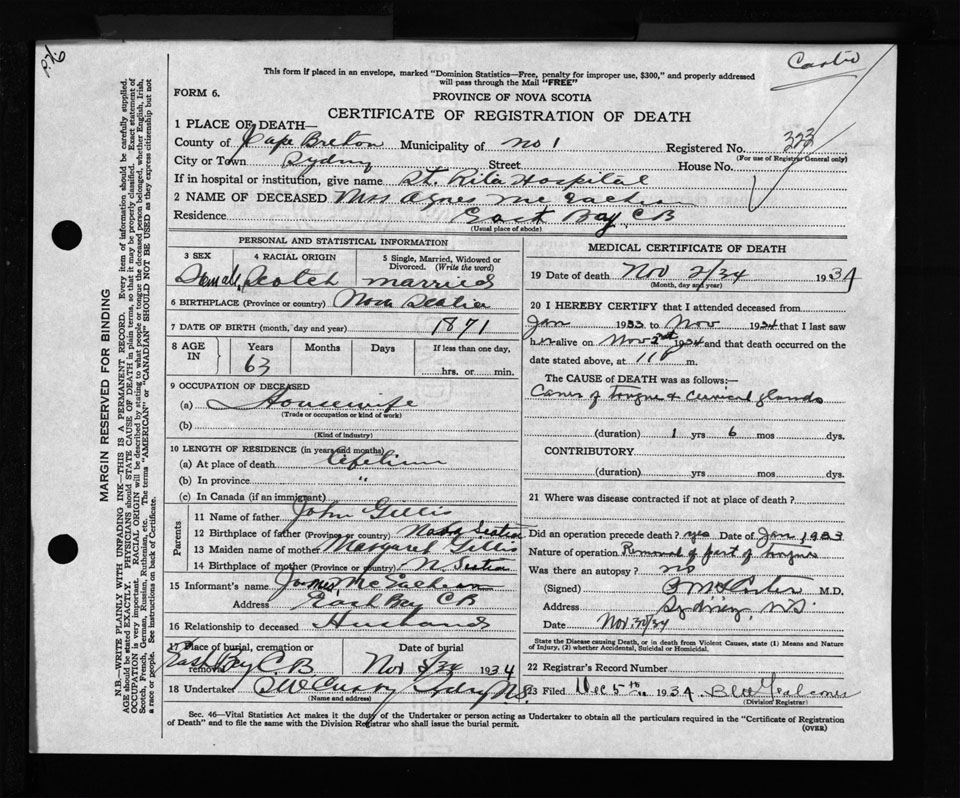 P.76
Carter
This form if placed in an envelope, marked "Dominion Statistics—Free, penalty for improper use, $300," and properly addressed
will pass through the Mail "FREE"
FORM 6.
PROVINCE OF NOVA SCOTIA
CERTIFICATE OF REGISTRATION OF DEATH
1 PLACE OF DEATH—
County of Cape Breton Municipality of No 1 Registered No. 323
(For use of Registrar General only)
City or Town Sydney Street House No.
If in hospital or institution, give name St. Rita Hospital
2 NAME OF DECEASED Mrs Agnes McEachern
Residence East Bay, CB
(Usual place of abode)
PERSONAL AND STATISTICAL INFORMATION
3 SEX 4 RACIAL ORIGIN 5 Single, Married, Widowed or
Divorced. (Write the word)
Female Scotch married
6 BIRTHPLACE (Province or country) Nova Scotia
7 DATE OF BIRTH (month, day and year) 1871
8 AGE IN Years Months Days If less than one day,
63 hrs. or min.
9 OCCUPATION OF DECEASED
(a) Housewife
(Trade or occupation or kind of work)
(b)
(Kind of industry)
10 LENGTH OF RESIDENCE (in years and months)
(a) At place of death Lifetime
(b) In province "
(c) In Canada (if an immigrant)
Parents
11 Name of father John Gillis
12 Birthplace of father (Province or country) Nova Scotia
13 Maiden name of mother Margaret Gillis
14 Birthplace of mother (Province or country) N. Scotia
15 Informant's name James McEachern
Address East Bay CB
16 Relationship to deceased Husband
17 Place of burial, cremation or removal Date of burial
East Bay C.B Nov 1934
18 Undertaker Sydney N.S.
(Name and address)
MEDICAL CERTIFICATE OF DEATH
19 Date of death Nov 2/34 1934
(Month, day and year)
20 I HEREBY CERTIFY that I attended deceased from
Jan 1933 to Nov 1934 that I last saw
her alive on Nov 2nd 1934 and that death occurred on the
date stated above, at 11 P m.
The CAUSE of DEATH was as follows:—
Cancer of tongue & cervical glands
(duration) 1 yrs 6 mos dys.
CONTRIBUTORY
(duration) yrs mos dys.
21 Where was disease contracted if not at place of death?
Did an operation precede death? yes Date of Jan 1933
Nature of operation Removal of part of tongue
Was there an autopsy? no
(Signed) M.D.
Address Sydney, N.S.
Date Nov. 30/34
State the Disease causing Death, or in death from Violent Causes, state (1) Means and Nature
of Injury, (2) whether Accidental, Suicidal or Homicidal.
22 Registrar's Record Number
23 Filed Dec 5th 1934
(Division Registrar)
Sec. 46—Vital Statistics Act makes it the duty of the Undertaker or person acting as Undertaker to obtain all the particulars required in the "Certificate of Registration
of Death" and to file the same with the Division Registrar who shall issue the burial permit.
(OVER)
MARGIN RESERVED FOR BINDING
N.B.—WRITE PLAINLY WITH UNFADING INK—THIS IS A PERMANENT RECORD. Every item of information should be carefully supplied.
AGE should be stated EXACTLY. PHYSICIANS should STATE CAUSE OF DEATH in plain terms, so that it may be properly classified. Exact statement of
OCCUPATION is very important. RACIAL ORIGIN will be described by stating to what people or tongue the deceased person belonged, whether English, Irish,
Scotch, French, German, Russian, Ruthenian, etc. The terms "AMERICAN" or "CANADIAN" SHOULD NOT BE USED as they express citizenship but not
a race or people. See instructions on back of Certificate.